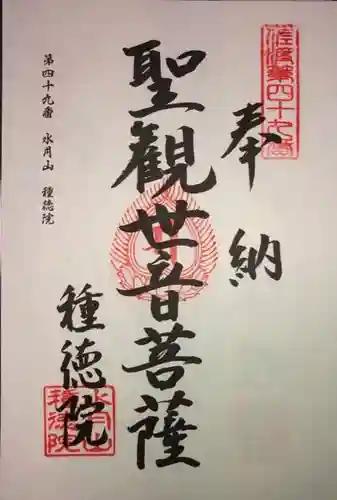 佐渡第四十九番
奉納
聖觀世音菩薩
種徳院
水月山
種徳院
第四十九番 水月山 種徳院